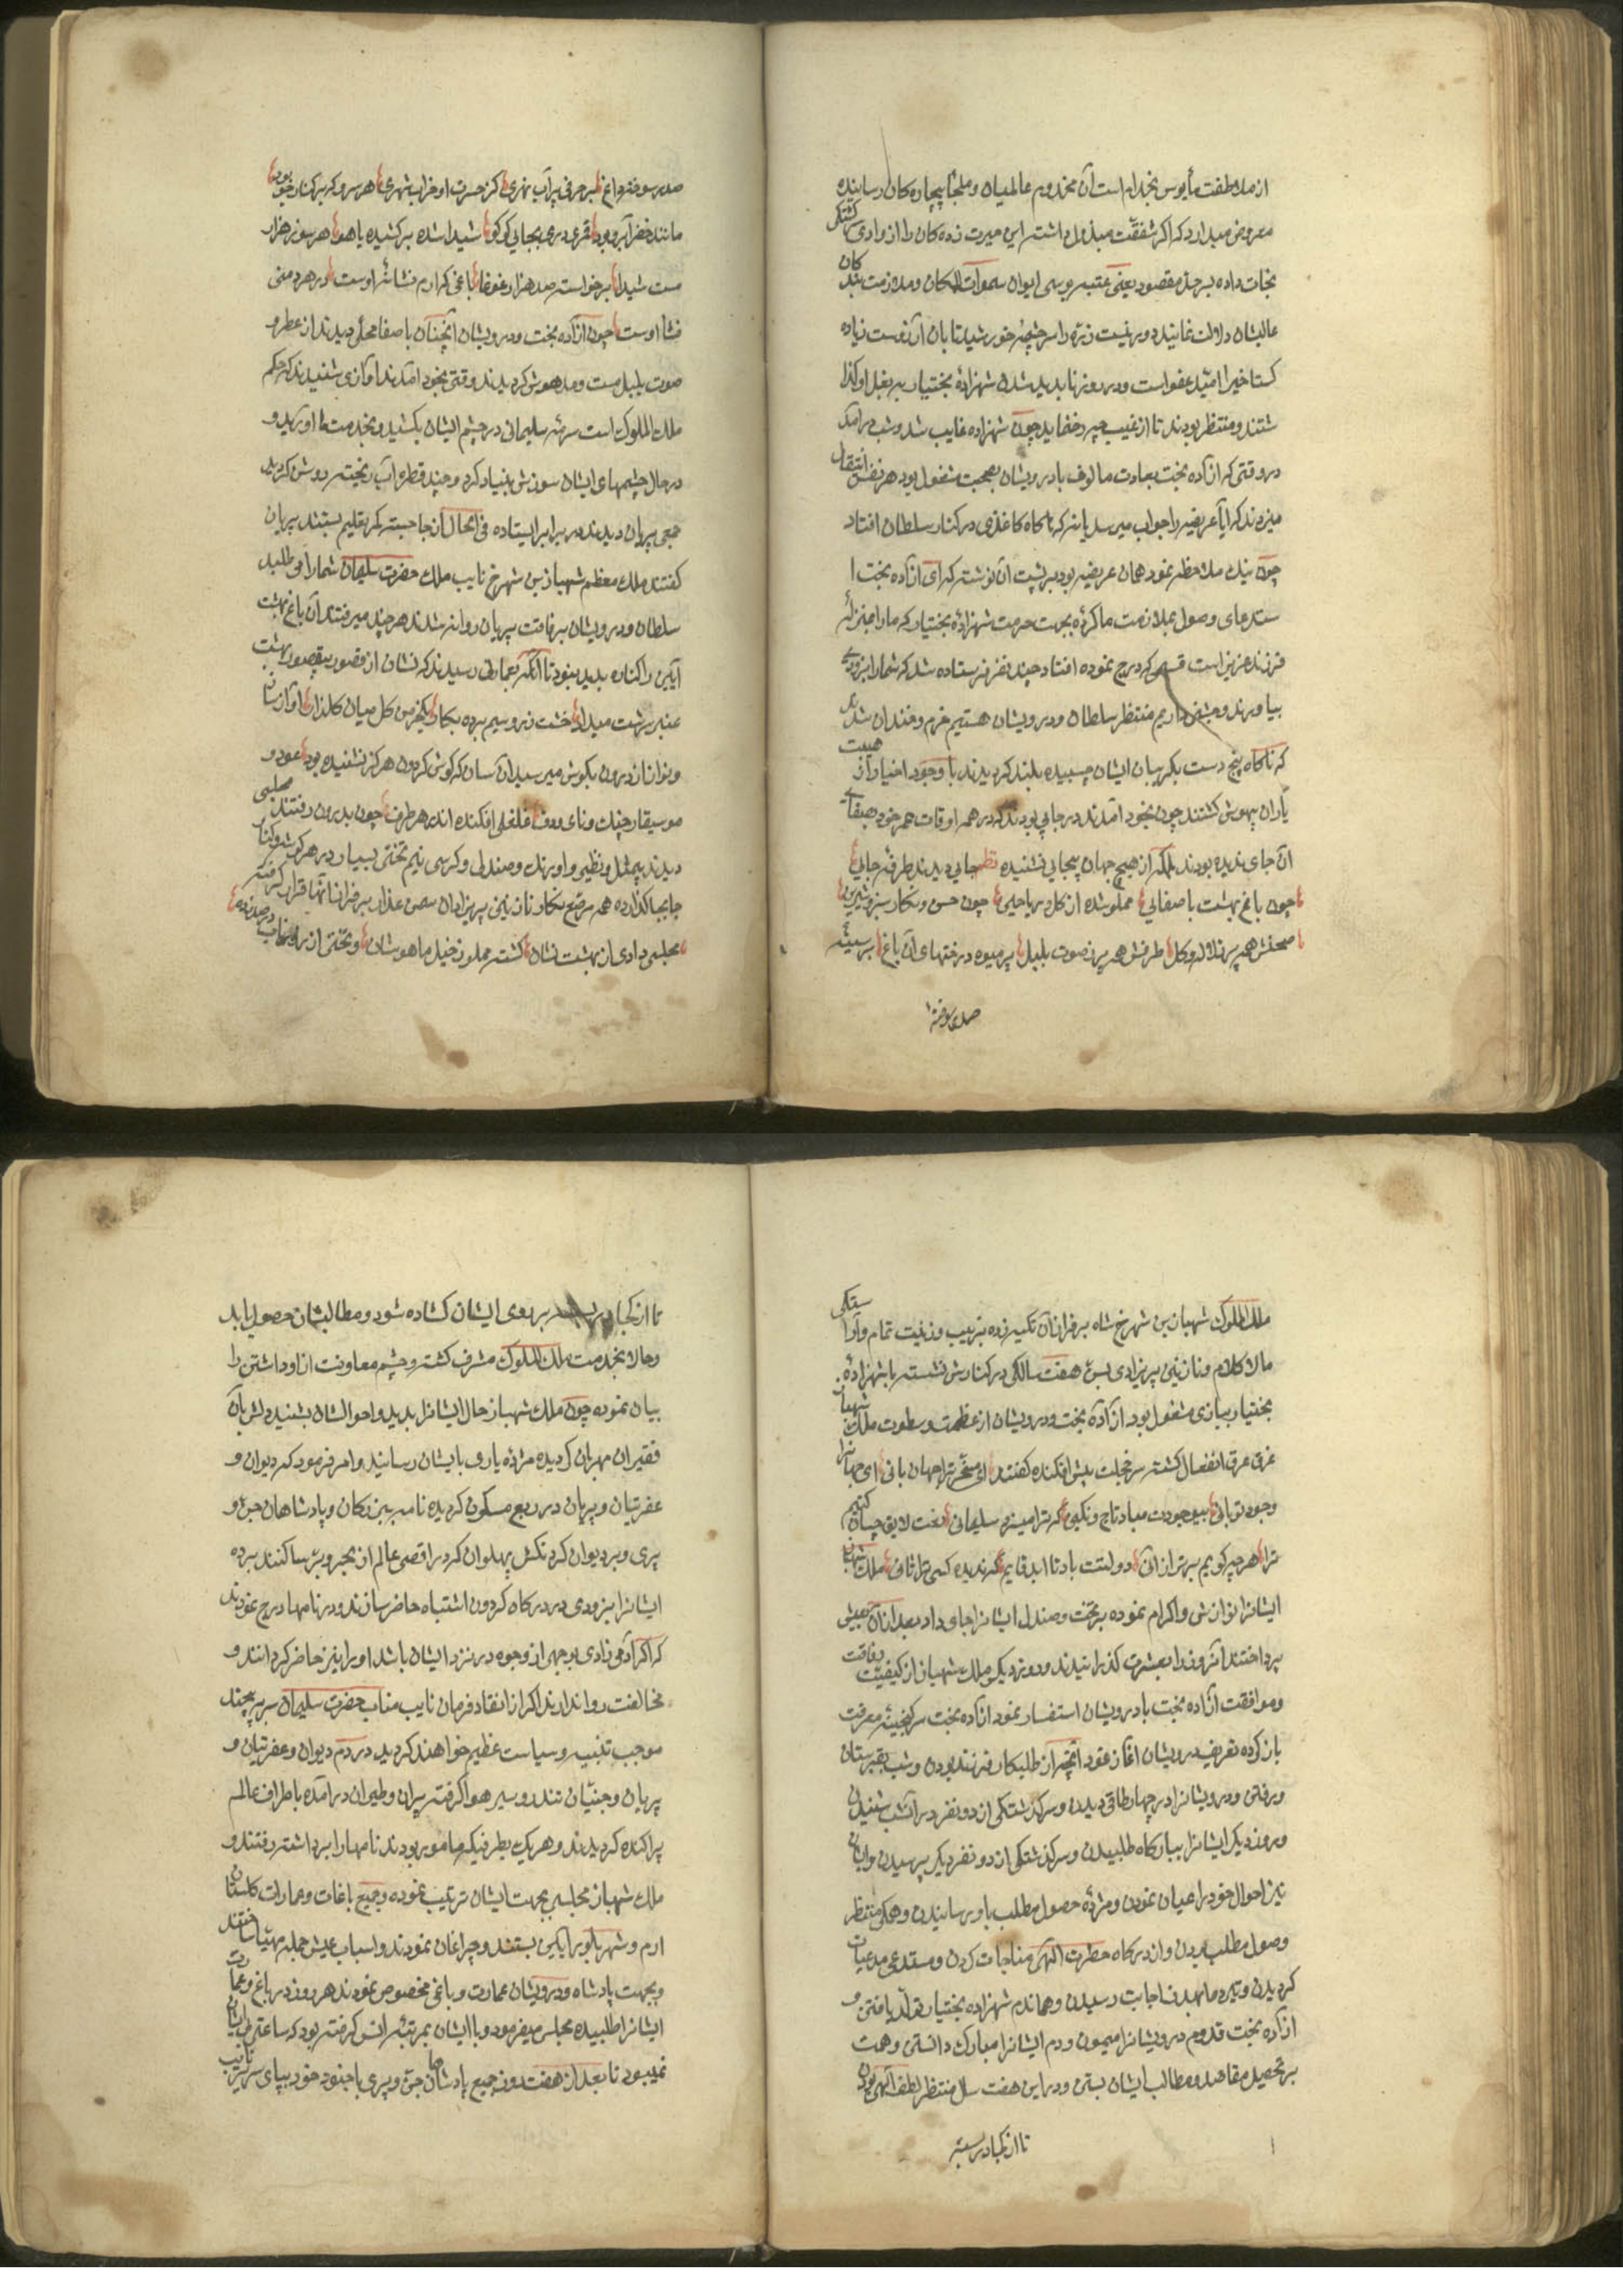 از ملاطفت مأیوس نخدام است آن مخدوم عالمیان و ملجأ بیچاره کان رسانیده
معروض میدارد که اکر شفقت مبذول داشته این حیرت زده کان را از وادی کشتکی
نجات داده بسرحد مقصود یعنی عتبه بوسی ایوان سموات المکان و ملازمت بندکان
عالیشان دلالت نمایند دور نیست ذره را سرچشمه خورشید تابان آرزوست زیاده
کستاخیرا امید عفو است و در روز نابدید شدن شهزاده بختیار بر بغل او کذا
شتند و منتظر بودند تا از غیب چه رخ نماید چون شهزاده غایب شد و شب درآمد
در وقتی که آزاده بخت بعادت مالوف با درویشان بصحبت مشغول بود هر نفس انتقال
میزدند که آیا عریضه را جواب میرسد یا نه که ناکاه کاغذی در کنار سلطان افتاد
چون نیک ملاحظه نمود همان عریضه بود بر پشت آن نوشته که ای آزاده بخت ا
ستدعای وصول بملازمت ما کرده بجهت حرمت شهزاده بختیار که ما را بمنزله
فرزند عزیز است قسمی که درج نموده افتاد چند نفر فرستاده شد که شما را بزودی
بیاورند و جشنی داریم منتظر سلطان و درویشان هستیم خرم و خندان شدند
که ناکاه پنج دست بکریبان ایشان چسبیده بلند کردیدند با وجود اختیار از هیبت
یاران بیهوش کشتند چون بخود آمدند در جایی بودند که در همه اوقات عمر خود بصفای
آن جای ندیده بودند بلکه از هیچ جهان پیمایی نشنیده نظم جایی دیدند طرفه جایی
چون باغ بهشت با صفایی مملو شده از کل و ریاحین چون حسن و نکار سبز و شیرین
صحنش همه پر ز لاله و کل طرفش همه پر ز صوت بلبل پر میوه درختهای آن باغ بر سینه
صد سوخته
صد سوخته داغ بر جرفی پر آب نهری کز حسرت او خراب شهری هر سرو که بر کنار جو بود
مانند خضر آبرو بود قمری دری بجایی کوکو شیدا شده بر کشیده یاهو هر سو ز هزار
مست شیدا برخواسته صد هزار غوغا باغی که ارم نشانه اوست در هر چمنی
فشا اوست چون آزاده بخت و درویشان آنچنان با صفا محلی دیدند از عطر و
صوت بلبل مست و مدهوش کردیدند وقتی بخود آمدند آوازی شنیدند که حکم
ملک الملوک است سرمه سلیمانی در چشم ایشان بکشید و بخدمت ما آورید و
در حال چشمهای ایشان سوزش بنیاد کرد و چند قطره آب ریخته روشن کردید
جمعی پریان دیدند در برابر ایستاده فی الحال از جا جسته کمر بقلیم بستند پریان
کفتند ملک معظم شهباز بن شهرخ نایب ملک حضرت سلیمان شما را می طلبد
سلطان و درویشان برفاقت پریان روانه شدند هر چند میرفتند آن باغ بهشت
آیین را کناره بدید نبود تا آنکه بعمارتی رسیدند که نشان از قصور بیقصور بهشت
عنبر سرشت میداد خشت زر و سیم برده بکار یکخرمن کل میان کلذار آواز ساز
و نواز از درون بکوش میرسید آن سان که کوش کردون هر کز نشنیده بود عود و
موسیقار چنک و نای و دف غلغلی افکنده اندر هر طرف چون بدرون رفتند مجلسی
دیدند بیمثل و نظیر و اورنک و صندلی و کرسی نیم تختی بسیار در هر کوشه و کنار
جابجا کذارده همه مرصع نکار نازنین پریزادان سمن عذار بر فراز آنها قرار کرفته
مجلسی دادی از بهشت نشان کشته مملو ز خیل ماهوشان و تختی از در صدر نهاده
ملک الملوک شهباز بن شهرخ شاه بر فراز آن تکیه زده بزیب و زینت تمام و آراستکی
مالا کلام و نازنینی پریزادی بسن هفت سالکی در کنارش نشسته با شهزاده
بختیار ببازی مشغول بود آزاده بخت و درویشان از عظمت و سطوت ملک شهباز
غرق عرق انفعال کشته سر خجلت پیش افکنده کفتند ای مسخر ترا جهان بانی ای جهانرا
وجود تو بانی بی وجودت مباد تاج و نکین که ترا میسزد سلیمانی مدحت لایق چسان کنیم
ترا هر چه کویم برتر از آنی دولتت باد تا ابد قایم که ندیده کسی ترا ثانی ملک شهباز
ایشانرا نوازش و اکرام نموده بر تخت و صندل ایشانرا جای داد بعد از آن بعیش
پرداختند آنروز را بعشرت کذرانیدند و روز دیکر ملک شهباز از کیفیت رفاقت
و موافقت آزاده بخت با درویشان استفسار نمود آزاده بخت سر کنجینه معرفت
باز کرده تعریف درویشان آغاز نمود آنچه از طلبکار فرزند بودن و شب بقبرستان
و رفتن و درویشانرا در چهارطاقی دیدن و سرکذشتکی از دو نفر در آنشب شنیدن
و روز دیکر ایشانرا ببارکاه طلبیدن و سرکذشتکی از دو نفر دیکر پرسیدن و ایشان
نیز احوال خود را عیان نمودن و مژده حصول مطلب باو رسانیدن و همکی منتظر
وصول مطلب بودن و از درکاه حضرت الهی مناجات کردن و مستدعی مدعیات
کردیدن و تیر دعا بهدف اجابت رسیدن و هماندم شهزاده بختیار تولد یافتن و
آزاده بخت قدوم درویشانرا میمون و دم ایشانرا مبارک دانستن و همت
بر تحصیل مقاصد و مطالب ایشان بستن و در این هفت سال منتظر لطف الهی بودن
تا از کجا در بسته
تا از کجا در بسته بر روی ایشان کشاده شود و مطالبشان حصول یابد
و حالا بخدمت ملک الملوک مشرف کشته و چشم معاونت از او داشتن را
بیان نموده چون ملک شهباز حال ایشانرا بدید و احوالشان بشنید دلش بآن
فقیران مهربان کردیده مژده یاری بایشان رسانید و امر فرمود که دیوان و
عفریتیان و پریان در ربع مسکون کردیده نامه ببزرکان و پادشاهان جن و
پری و بر دیوان کردنکش پهلوان که در اقصی عالم از بحر و بر ساکنند برده
ایشانرا بزودی در درکاه کردون اشتباه حاضر سازند و در نامها درج نمودند
که اکر آدمی زادی بوجهی از وجوه در نزد ایشان باشد او را نیز حاضر کردانند و
مخالفت روا ندارند اکر از انقاد فرمان نایب مناب حضرت سلیمان سر بپیچند
موجب تنبیه و سیاست عظیم خواهند کردید در دم دیوان و عفریتیان و
پریان و جنیان تندرو سیر هوا کرفته پران و طیران درآمده باطراف عالم
پراکنده کردیدند و هر یک بطرفیکه مامور بودند نامها را برداشته رفتند و
ملک شهباز مجلسی بجهت ایشان ترتیب نموده و جمیع باغات و عمارات کلستان
ارم و شهر بلور آیین بستند و چراغان نمودند و اسباب عیش جمله مهیا ساختند
و بجهت پادشاه و درویشان عمارت و باغی مخصوص نمودند هر روز در باغ و عمارت
ایشانرا طلبیده مجلس میفرمود و با ایشان بمرتبه انس کرفته بود که ساعتی بی ایشان
نمیبود تا بعد از هفت روز جمیع پادشاهان جن و پری با جنود خود بپای سریر نایب